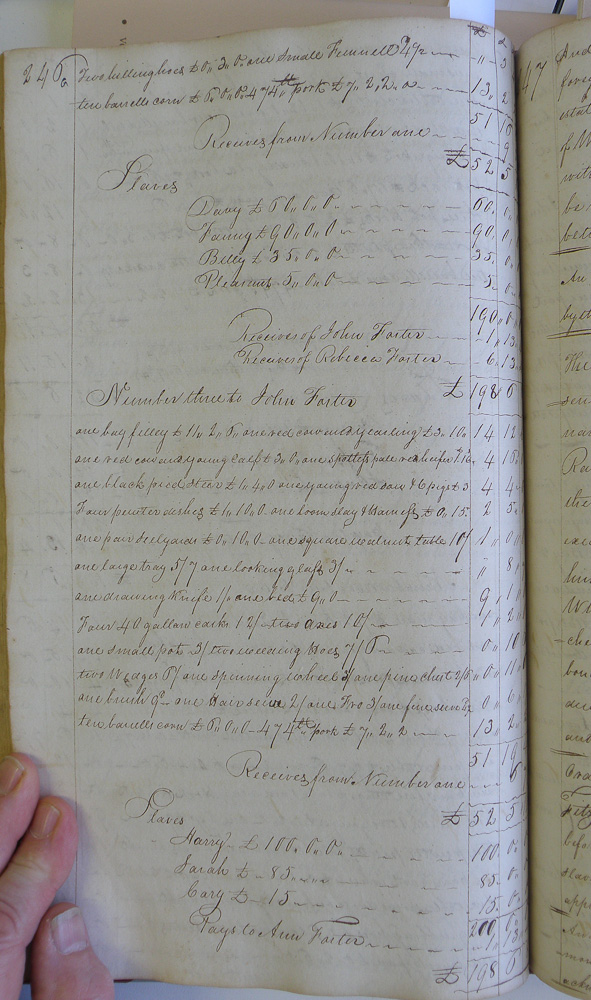 246
two hilling hoes £0,,3,,0. one Small Funnell 4½ ,, 3
ten barrells corn £6,,0,,0. 474 lb pork £7,,2,,2 13,, 2
51 16
Receives from Number one 9
£ 52 5
Slaves
Davy £60,,0,,0 60,, 0
Fanny £90,,0,,0 90,, 0
Billy £35,,0,,0 35,, 0
Pleasant 5,,0,,0 5,, 0
190,, 0
Receives of John Foster 1,, 13
Receives of Rebecca Foster 6,, 13
£ 198 6
Number three to John Foster
one bay filley £11,,2,,6. one red cow and yearling £3,,10 14 12
one red cow and young calf £3,,0,, one pale red heifer 4 15
one black pied steer £1,,4,,0 one young red sow & 6 pigs £3 4 4
Four pewter dishes £1,,10,,0 one loom slay & harness £0,,15 2 5
one pair steelyards £0,,10,,0 one square walnut table 10/ 1 0
one large tray 5/7 one looking glass 3/ ,, 8
one drawing knife 1/ one bed £9,,0 9,, 1
Four 40 gallon casks 12/ two axes 10/ 1 2
one small pot 3/ two weeding hoes 7/6 0,, 10
two Wedges 6/ one spinning wheel 3/ one pine chest 2/6 0 11
one brush 9d one Hair seive 2/ one Fro 3/ one fine 0 6
ten barrells corn £6,,0,,0 474 lb pork £7,,2,,2 13,, 2
51 16
Receives from Number one
£ 52 5
Slaves
Harry £100,,0,,0 100 0
Sarah £ 85 85 0
Cary £ 15 15 0
200 0
Pays to Ann Foster 1 13
£ 198 6
247
And
estat
of W
with
be
bett
An
by th
The
sen
nar
the
exec
him
Wi
che
bou
and
befo
slav
app
A